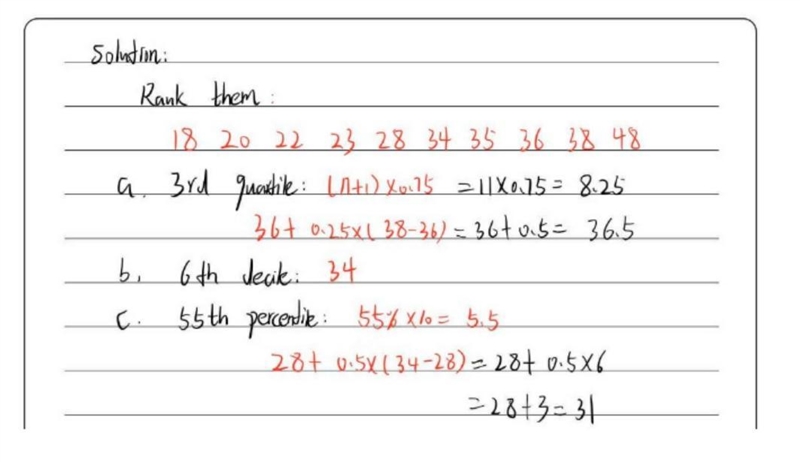 Solution:
Rank them:
18 20 22 23 28 34 35 36 38 48
a. 3rd quartile: (n+1)×0.75 = 11×0.75 = 8.25
36+ 0.25×(38-36) = 36+0.5 = 36.5
b. 6th decile: 34
c. 55th percentile: 55%×10 = 5.5
28+ 0.5×(34-28) = 28+ 0.5×6
=28+3=31